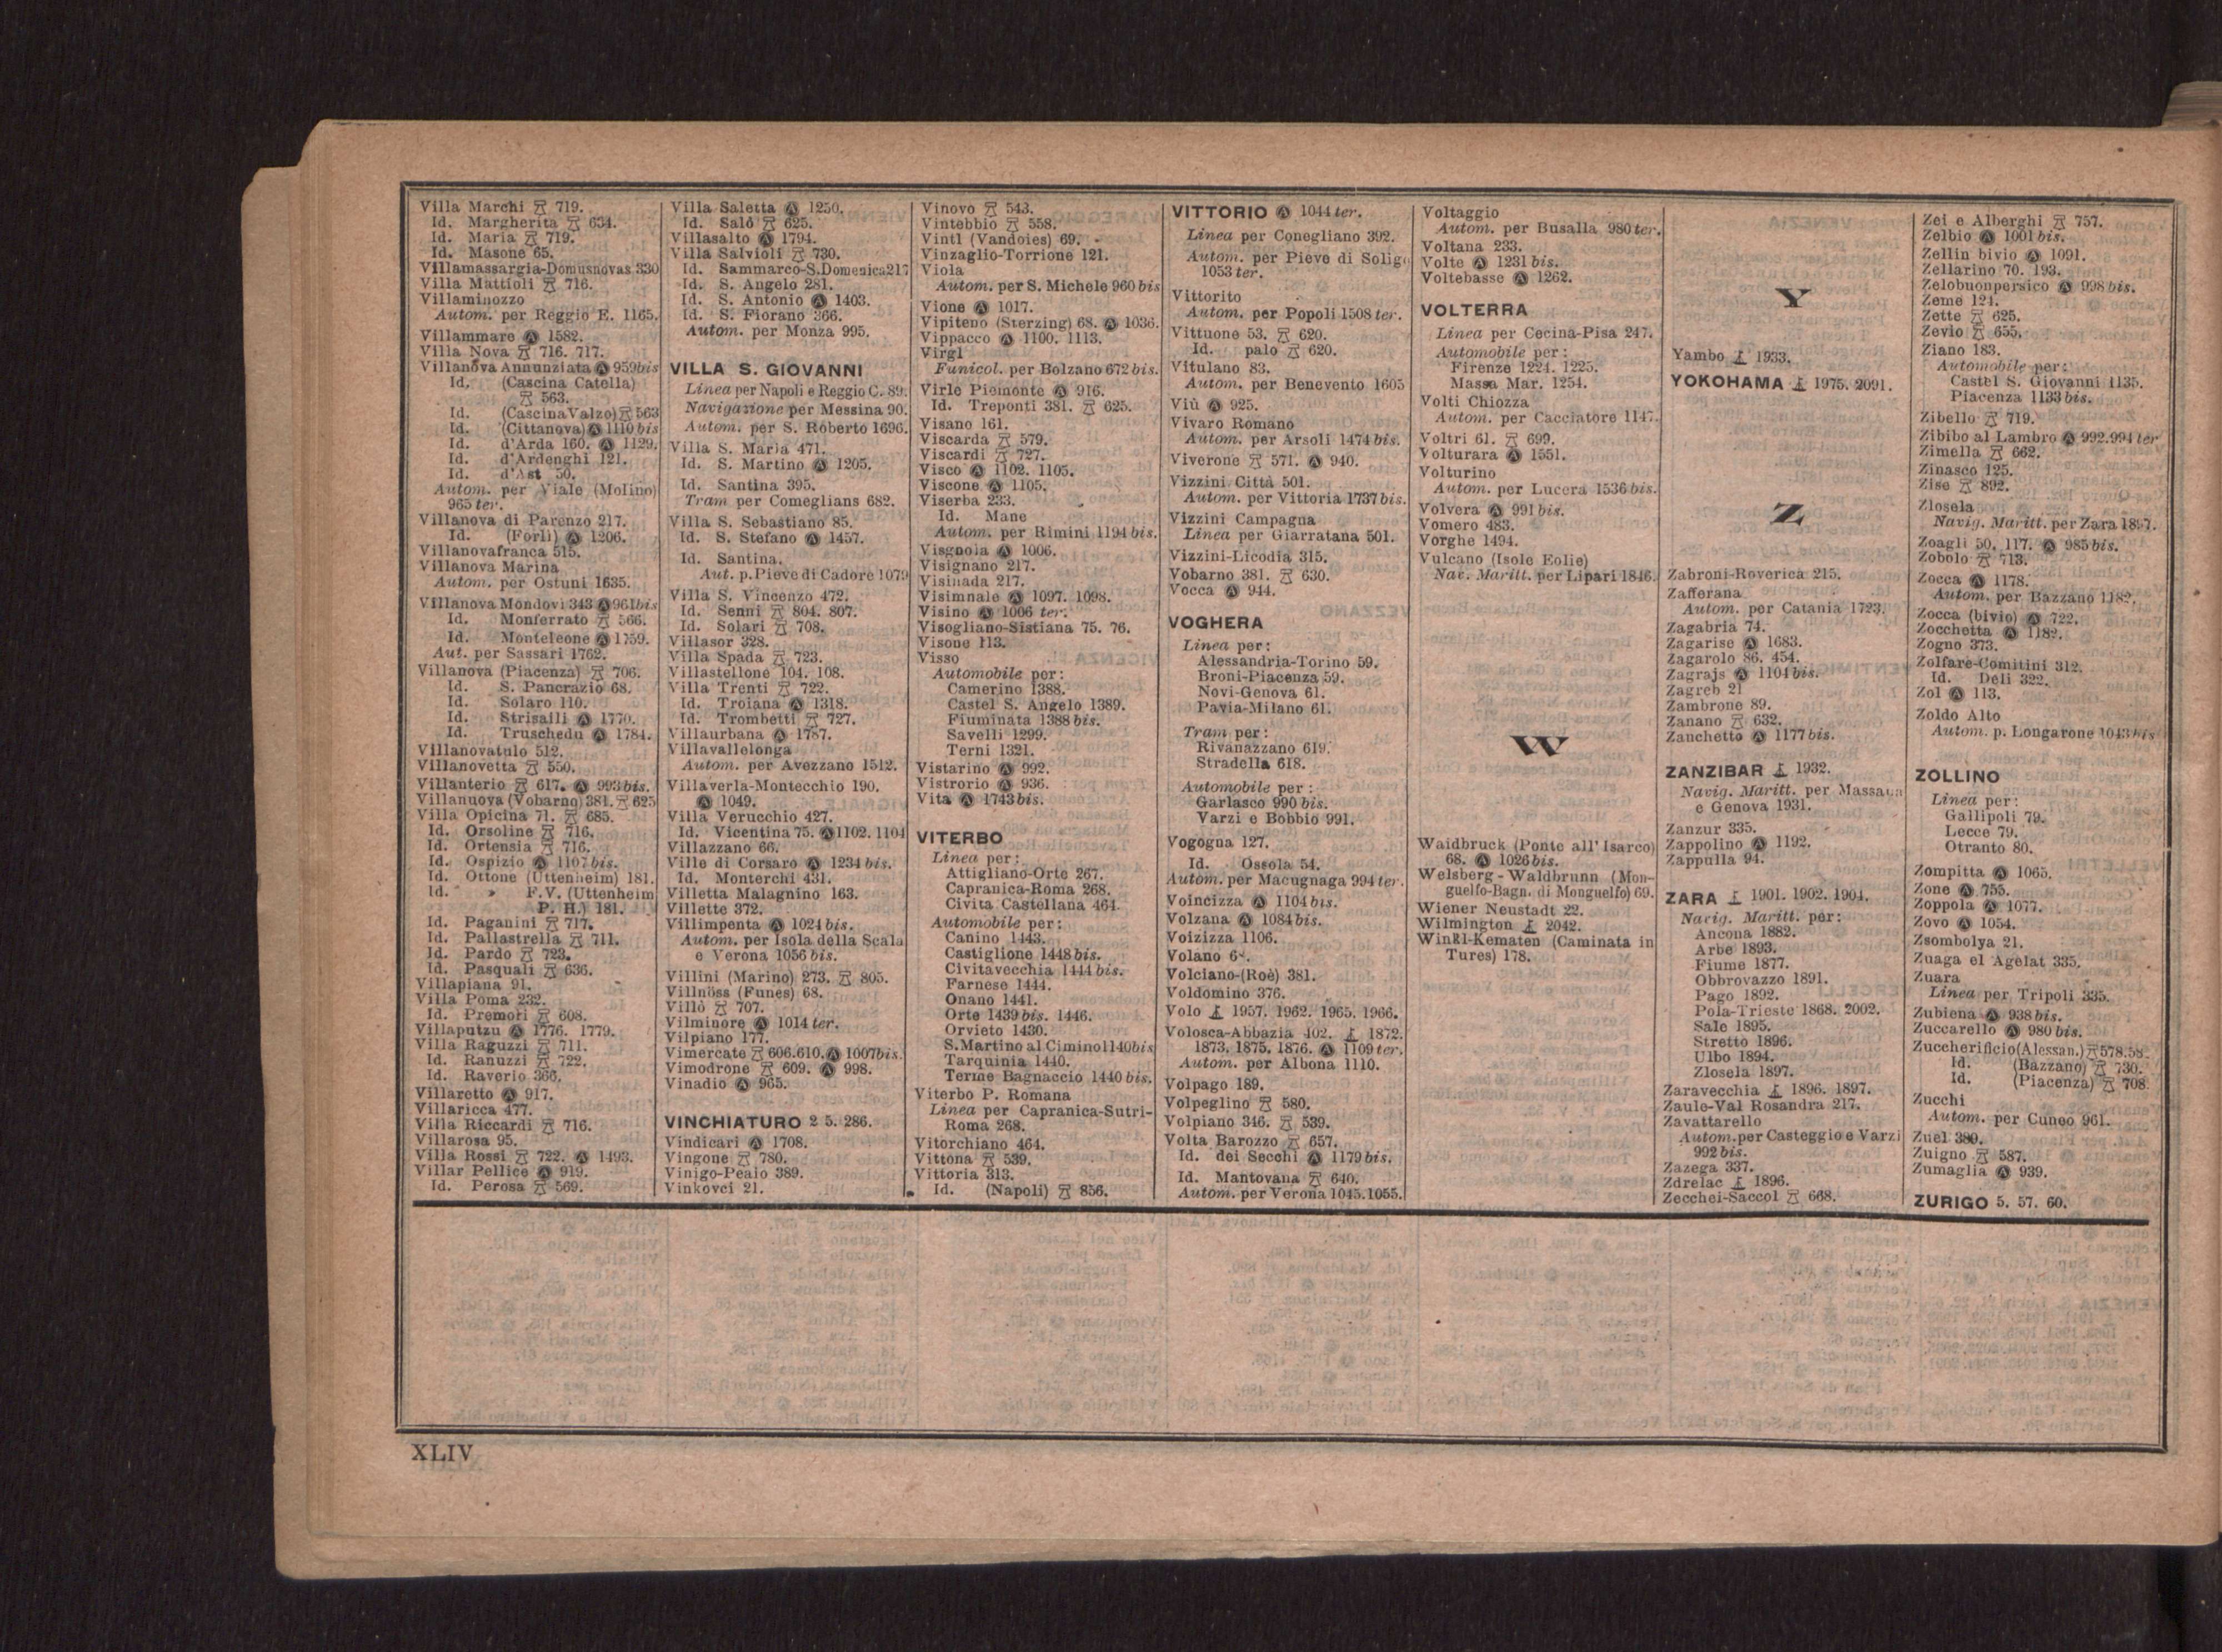 Villa Marchi 719.
Id. Margherita 634.
Id. Maria 719.
Id. Masone 65.
Villamassargia-Domusnovas 330
Villa Mattioli 716.
Villaminozzo
Autom. per Reggio E. 1165.
Villammare Ⓐ 1582.
Villa Nova 716. 717.
Villanova Annunziata Ⓐ 959bis
Id. (Cascina Catella)
563.
Id. (Cascina Valzo) 563
Id. (Cittanova) Ⓐ 1110 bis
Id. d'Arda 160. Ⓐ 1129.
Id. d'Ardenghi 121.
Id. d'Ast 50.
Autom. per Viale (Molino)
965 ter.
Villanova di Parenzo 217.
Id. (Forlì) Ⓐ 1206.
Villanovafranca 515.
Villanova Marina
Autom. per Ostuni 1635.
Villanova Mondovì 343 Ⓐ 961bis
Id. Monferrato 566.
Id. Monteleone Ⓐ 1759.
Aut. per Sassari 1762.
Villanova (Piacenza) 706.
Id. S. Pancrazio 68.
Id. Solaro 110.
Id. Strisaili Ⓐ 1770.
Id. Truschedu Ⓐ 1784.
Villanovatulo 512.
Villanovetta 550.
Villanterio 617. Ⓐ 993bis.
Villanuova (Vobarno) 381. 625
Villa Opicina 71. 685.
Id. Orsoline 716.
Id. Ortensia 716.
Id. Ospizio Ⓐ 1107 bis.
Id. Ottone (Uttenheim) 181.
Id. » F.V. (Uttenheim
P. H.) 181.
Id. Paganini 717.
Id. Pallastrella 711.
Id. Pardo 723.
Id. Pasquali 636.
Villapiana 91.
Villa Poma 232.
Id. Premori 608.
Villaputzu Ⓐ 1776. 1779.
Villa Raguzzi 711.
Id. Ranuzzi 722.
Id. Raverio 366.
Villaretto Ⓐ 917.
Villaricca 477.
Villa Riccardi 716.
Villarosa 95.
Villa Rossi 722. Ⓐ 1493.
Villar Pellice Ⓐ 919.
Id. Perosa 569.
Villa Saletta Ⓐ 1250.
Id. Salò 625.
Villasalto Ⓐ 1794.
Villa Salvioli 730.
Id. Sammarco-S.Domenica 217
Id. S. Angelo 281.
Id. S. Antonio Ⓐ 1403.
Id. S. Fiorano 366.
Autom. per Monza 995.
VILLA S. GIOVANNI
Linea per Napoli e Reggio C. 89.
Navigazione per Messina 90.
Autom. per S. Roberto 1696.
Villa S. Maria 471.
Id. S. Martino Ⓐ 1205.
Id. Santina 395.
Tram per Comeglians 682.
Villa S. Sebastiano 85.
Id. S. Stefano Ⓐ 1457.
Id. Santina.
Aut. p. Pieve di Cadore 1079
Villa S. Vincenzo 472.
Id. Senni 804. 807.
Id. Solari 708.
Villasor 328.
Villa Spada 723.
Villastellone 104. 108.
Villa Trenti 722.
Id. Troiana Ⓐ 1318.
Id. Trombetti 727.
Villaurbana Ⓐ 1787.
Villavallelonga
Autom. per Avezzano 1512.
Villaverla-Montecchio 190.
Ⓐ 1049.
Villa Verucchio 427.
Id. Vicentina 75. Ⓐ 1102. 1104
Villazzano 66.
Ville di Corsaro Ⓐ 1234 bis.
Id. Monterchi 431.
Villetta Malagnino 163.
Villette 372.
Villimpenta Ⓐ 1024 bis.
Autom. per Isola della Scala
e Verona 1056 bis.
Villini (Marino) 273. 805.
Villnöss (Funes) 68.
Villò 707.
Vilminore Ⓐ 1014 ter.
Vilpiano 177.
Vimercate 606.610. Ⓐ 1007bis.
Vimodrone 609. Ⓐ 998.
Vinadio Ⓐ 965.
VINCHIATURO 2 5. 286.
Vindicari Ⓐ 1708.
Vingone 780.
Vinigo-Peaio 389.
Vinkovci 21.
Vinovo 543.
Vintebbio 558.
Vintl (Vandoies) 69.
Vinzaglio-Torrione 121.
Viola
Autom. per S. Michele 960 bis
Vione Ⓐ 1017.
Vipiteno (Sterzing) 68. Ⓐ 1036.
Vippacco Ⓐ 1100. 1113.
Virgl
Funicol. per Bolzano 672 bis.
Virle Piemonte Ⓐ 916.
Id. Treponti 381. 625.
Visano 161.
Viscarda 579.
Viscardi 727.
Visco Ⓐ 1102. 1105.
Viscone Ⓐ 1105.
Viserba 233.
Id. Mane
Autom. per Rimini 1194 bis.
Visgnola Ⓐ 1006.
Visignano 217.
Visinada 217.
Visimnale Ⓐ 1097. 1098.
Visino Ⓐ 1006 ter.
Visogliano-Sistiana 75. 76.
Visone 113.
Visso
Automobile per:
Camerino 1388.
Castel S. Angelo 1389.
Fiuminata 1388 bis.
Savelli 1299.
Terni 1321.
Vistarino Ⓐ 992.
Vistrorio Ⓐ 936.
Vita Ⓐ 1743 bis.
VITERBO
Linea per:
Attigliano-Orte 267.
Capranica-Roma 268.
Civita Castellana 464.
Automobile per:
Canino 1443.
Castiglione 1448 bis.
Civitavecchia 1444 bis.
Farnese 1444.
Onano 1441.
Orte 1439 bis. 1446.
Orvieto 1430.
S. Martino al Cimino 1140bis
Tarquinia 1440.
Terme Bagnaccio 1440 bis.
Viterbo P. Romana
Linea per Capranica-Sutri-
Roma 268.
Vitorchiano 464.
Vittona 539.
Vittoria 313.
Id. (Napoli) 856.
VITTORIO Ⓐ 1044 ter.
Linea per Conegliano 392.
Autom. per Pieve di Soligo
1053 ter.
Vittorito
Autom. per Popoli 1508 ter.
Vittuone 53. 620.
Id. palo 620.
Vitulano 83.
Autom. per Benevento 1605
Viù Ⓐ 925.
Vivaro Romano
Autom. per Arsoli 1474 bis.
Viverone 571. Ⓐ 940.
Vizzini Città 501.
Autom. per Vittoria 1737 bis.
Vizzini Campagna
Linea per Giarratana 501.
Vizzini-Licodia 315.
Vobarno 381. 630.
Vocca Ⓐ 944.
VOGHERA
Linea per:
Alessandria-Torino 59.
Broni-Piacenza 59.
Novi-Genova 61.
Pavia-Milano 61.
Tram per:
Rivanazzano 619.
Stradella 618.
Automobile per:
Garlasco 990 bis.
Varzi e Bobbio 991.
Vogogna 127.
Id. Ossola 54.
Autom. per Macugnaga 994 ter.
Voincizza Ⓐ 1104 bis.
Volzana Ⓐ 1084 bis.
Voizizza 1106.
Volano
Volciano-(Roè) 381.
Voldomino 376.
Volo 1957. 1962. 1965. 1966.
Volosca-Abbazia 402. 1872.
1873. 1875. 1876. Ⓐ 1109 ter.
Autom. per Albona 1110.
Volpago 189.
Volpeglino 580.
Volpiano 346. 539.
Volta Barozzo 657.
Id. dei Secchi Ⓐ 1179 bis.
Id. Mantovana 640.
Autom. per Verona 1045.1055.
Voltaggio
Autom. per Busalla 980 ter.
Voltana 233.
Volte Ⓐ 1231 bis.
Voltebasse Ⓐ 1262.
VOLTERRA
Linea per Cecina-Pisa 247.
Automobile per:
Firenze 1224. 1225.
Massa Mar. 1254.
Volti Chiozza
Autom. per Cacciatore 1147.
Voltri 61. 699.
Volturara Ⓐ 1551.
Volturino
Autom. per Lucera 1536 bis.
Volvera Ⓐ 991 bis.
Vomero 483.
Vorghe 1494.
Vulcano (Isole Eolie)
Nav. Maritt. per Lipari 1846.
W
Waidbruck (Ponte all' Isarco)
68. Ⓐ 1026 bis.
Welsberg - Waldbrunn (Mon-
guelfo-Bagn. di Monguelfo) 69.
Wiener Neustadt 22.
Wilmington 2042.
Winkl-Kematen (Caminata in
Tures) 178.
Y
Yambo 1933.
YOKOHAMA 1975. 2091.
Z
Zabroni-Roverica 215.
Zafferana
Autom. per Catania 1723.
Zagabria 74.
Zagarise Ⓐ 1683.
Zagarolo 86. 454.
Zagrajs Ⓐ 1104 bis.
Zagreb 21
Zambrone 89.
Zanano 632.
Zanchetto Ⓐ 1177 bis.
ZANZIBAR 1932.
Navig. Maritt. per Massaua
e Genova 1931.
Zanzur 335.
Zappolino Ⓐ 1192.
Zappulla 94.
ZARA 1901. 1902. 1904.
Navig. Maritt. per:
Ancona 1882.
Arbe 1893.
Fiume 1877.
Obbrovazzo 1891.
Pago 1892.
Pola-Trieste 1868. 2002.
Sale 1895.
Stretto 1896.
Ulbo 1894.
Zlosela 1897.
Zaravecchia 1896. 1897.
Zaule-Val Rosandra 217.
Zavattarello
Autom. per Casteggio e Varzi
992 bis.
Zazega 337.
Zdrelac 1896.
Zecchei-Saccol 668.
Zei e Alberghi 757.
Zelbio Ⓐ 1001 bis.
Zellin bivio Ⓐ 1091.
Zellarino 70. 193.
Zelobuonpersico Ⓐ 998 bis.
Zeme 124.
Zette 625.
Zevio 655.
Ziano 183.
Automobile per:
Castel S. Giovanni 1135.
Piacenza 1133 bis.
Zibello 719.
Zibibo al Lambro Ⓐ 992.994 ter
Zimella 662.
Zinasco 125.
Zise 892.
Zlosela
Navig. Maritt. per Zara 1897.
Zoagli 50. 117. Ⓐ 985 bis.
Zobolo 713.
Zocca Ⓐ 1178.
Autom. per Bazzano 1182.
Zocca (bivio) Ⓐ 722.
Zocchetta Ⓐ 1182.
Zogno 373.
Zolfare-Comitini 312.
Id. Deli 322.
Zol Ⓐ 113.
Zoldo Alto
Autom. p. Longarone 1043 bis
ZOLLINO
Linea per:
Gallipoli 79.
Lecce 79.
Otranto 80.
Zompitta Ⓐ 1065.
Zone Ⓐ 755.
Zoppola Ⓐ 1077.
Zovo Ⓐ 1054.
Zsombolya 21.
Zuaga el Agelat 335.
Zuara
Linea per Tripoli 335.
Zubiena Ⓐ 938 bis.
Zuccarello Ⓐ 980 bis.
Zuccherificio (Alessan.) 578.58
Id. (Bazzano) 730.
Id. (Piacenza) 708.
Zucchi
Autom. per Cuneo 961.
Zuel 389.
Zuigno 587.
Zumaglia Ⓐ 939.
ZURIGO 5. 57. 60.
XLIV